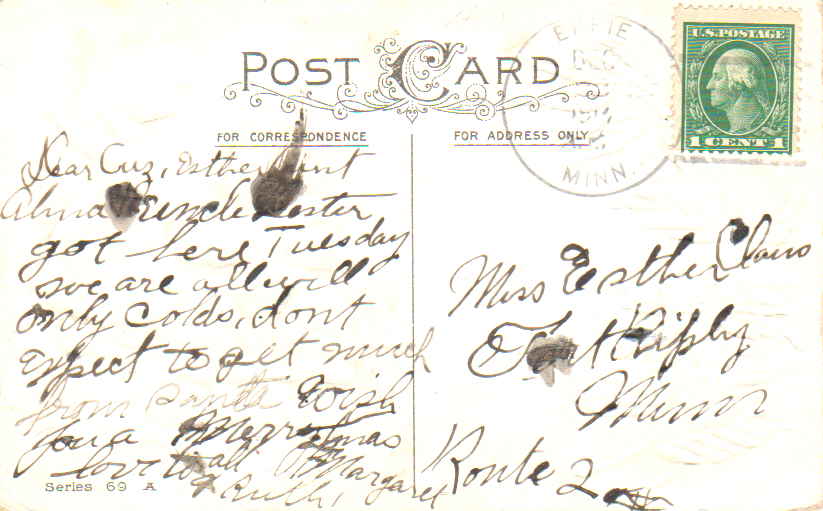 POST CARD
FOR CORRESPONDENCE
FOR ADDRESS ONLY
EFFIE
DEC
MINN.
U.S. POSTAGE
1 CENT 1
Dear Cuz, Esther Aunt
Alma & Uncle Lester
got here Tuesday
we are all well
only colds, dont
expect to get much
from Santa Wish
you a Merry Xmas
love to all Margaret
& Ruth,
Series 69 A
Miss Esther
Fort Ripley
Minn
Route 2